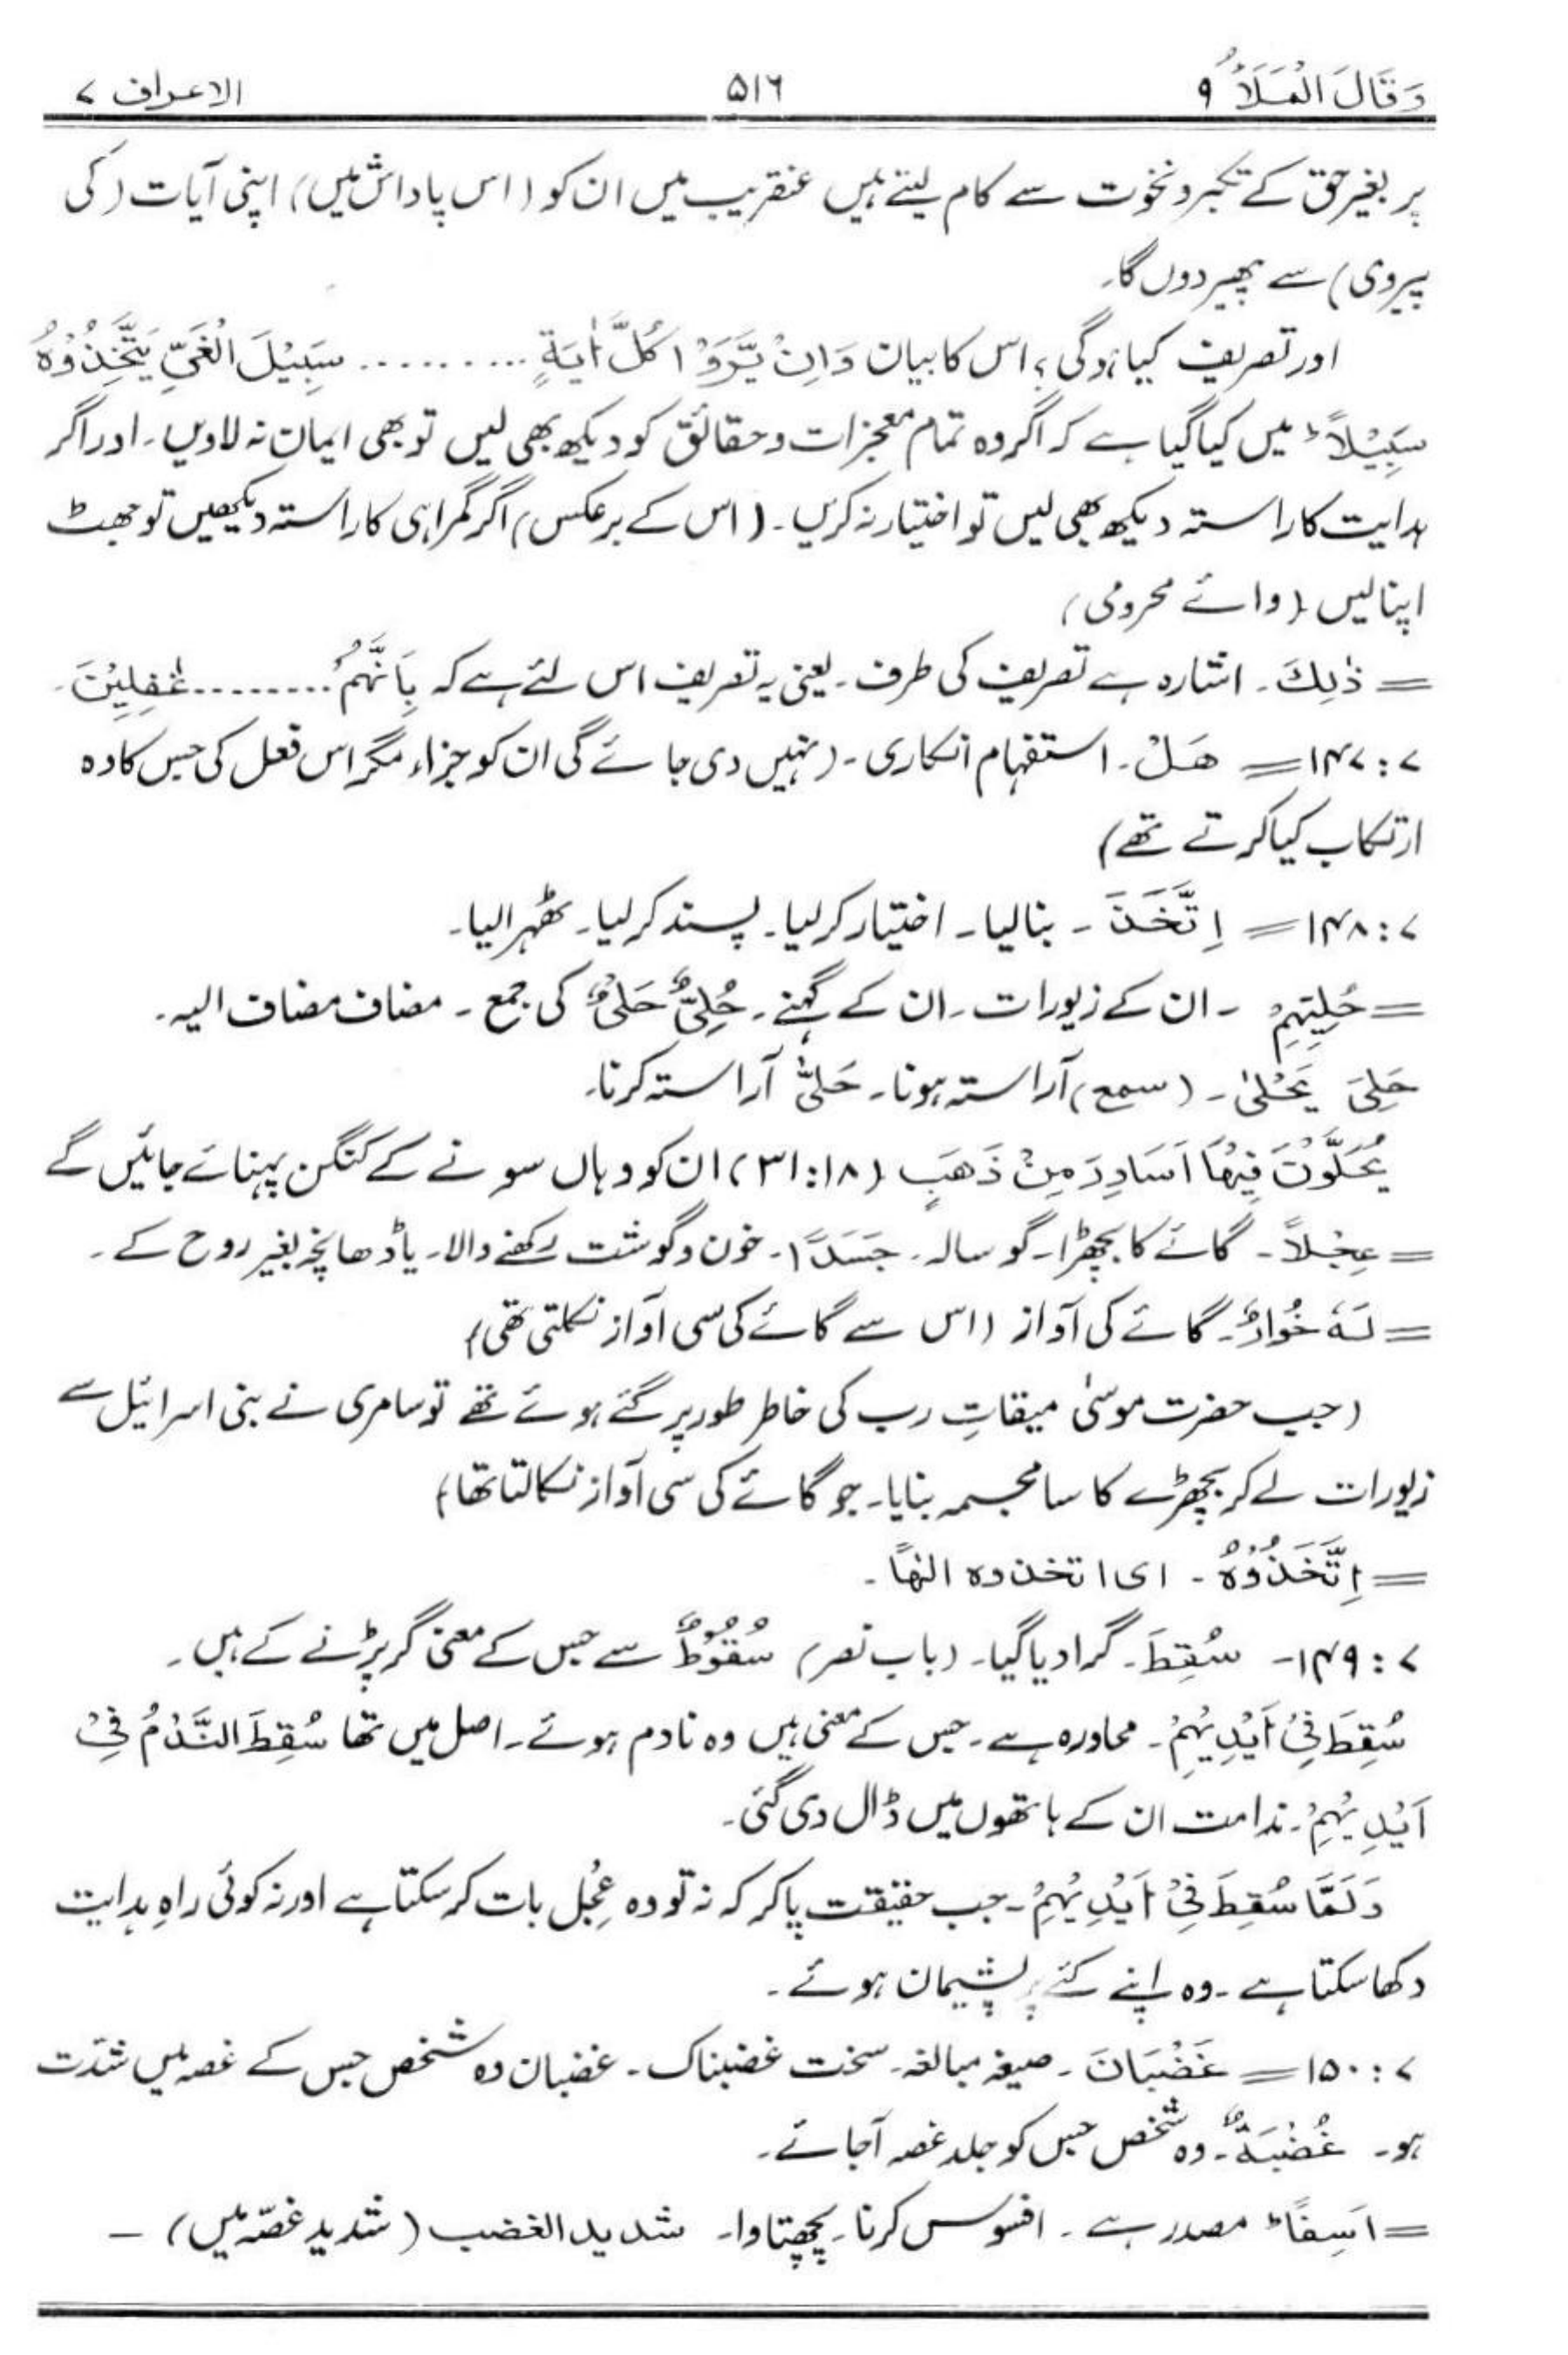 وَقَالَ الْمَلَاُ ۹ ۵۱۶ الاعراف ۷
پر بغیر حق کے تکبر و نخوت سے کام لیتے ہیں عنقریب میں ان کو (اس پاداش میں) اپنی آیات (کی
پیروی) سے پھیر دوں گا۔
اور تصریف کیا ہوگی؟ اس کا بیان وَاِنْ يَّرَوْا كُلَّ اٰيَةٍ .......... سَبِيْلَ الْغَيِّ يَتَّخِذُوْهُ
سَبِيْلًا ؕ میں کیا گیا ہے کہ اگر وہ تمام معجزات و حقائق کو دیکھ بھی لیں تو بھی ایمان نہ لاویں۔ اور اگر
ہدایت کا راستہ دیکھ بھی لیں تو اختیار نہ کریں۔ (اس کے برعکس) اگر گمراہی کا راستہ دیکھیں تو جھٹ
اپنا لیں (وائے محرومی)
= ذٰلِكَ۔ اشارہ ہے تصریف کی طرف۔ یعنی یہ تصریف اس لئے ہے کہ بِاَنَّهُمْ ........ غٰفِلِيْنَ۔
۷:۱۴۷ = هَلْ۔ استفہام انکاری۔ (نہیں دی جائے گی ان کو جزاء مگر اس فعل کی جس کا وہ
ارتکاب کیا کرتے تھے)
۷:۱۴۸ = اِتَّخَذَ ۔ بنا لیا۔ اختیار کر لیا۔ پسند کر لیا۔ ٹھہرا لیا۔
= حُلِيِّهِمْ ۔ ان کے زیورات۔ ان کے گہنے۔ حُلِيٌّ حَلْیٌ کی جمع۔ مضاف مضاف الیہ۔
حَلِیَ يَحْلٰى۔ (سمع) آراستہ ہونا۔ حَلّٰی آراستہ کرنا۔
يُحَلَّوْنَ فِيْهَا اَسَاوِرَ مِنْ ذَهَبٍ (۱۸:۳۱) ان کو وہاں سونے کے کنگن پہنائے جائیں گے
= عِجْلًا۔ گائے کا بچھڑا۔ گوسالہ۔ جَسَدًا۔ خون و گوشت رکھنے والا۔ یا ڈھانچہ بغیر روح کے۔
= لَهٗ خُوَارٌ۔ گائے کی آواز (اس سے گائے کی سی آواز نکلتی تھی)
(جب حضرت موسیٰ میقاتِ رب کی خاطر طور پر گئے ہوئے تھے تو سامری نے بنی اسرائیل سے
زیورات لے کر بچھڑے کا سا مجسمہ بنایا۔ جو گائے کی سی آواز نکالتا تھا)
= اِتَّخَذُوْهُ ۔ ای اتخذوه الٰهًا۔
۷:۱۴۹۔ سُقِطَ۔ گرا دیا گیا۔ (باب نصر) سُقُوْطٌ سے جس کے معنی گر پڑنے کے ہیں۔
سُقِطَ فِيْ اَيْدِيْهِمْ۔ محاورہ ہے۔ جس کے معنی ہیں وہ نادم ہوئے۔ اصل میں تھا سُقِطَ النَّدْمُ فِيْ
اَيْدِيْهِمْ۔ ندامت ان کے ہاتھوں میں ڈال دی گئی۔
وَلَمَّا سُقِطَ فِيْ اَيْدِيْهِمْ۔ جب حقیقت پاکر کہ نہ تو وہ عِجْل بات کر سکتا ہے اور نہ کوئی راہِ ہدایت
دکھا سکتا ہے۔ وہ اپنے کئے پر پشیمان ہوئے۔
۷:۱۵۰ = غَضْبَانَ ۔ صیغہ مبالغہ۔ سخت غضبناک۔ غضبان وہ شخص جس کے غصہ میں شدّت
ہو۔ غُضْبَةٌ۔ وہ شخص جس کو جلد غصہ آجائے۔
= اَسِفًا ؕ مصدر ہے۔ افسوس کرنا۔ پچھتاوا۔ شدید الغضب (شدید غصّہ میں) ۔